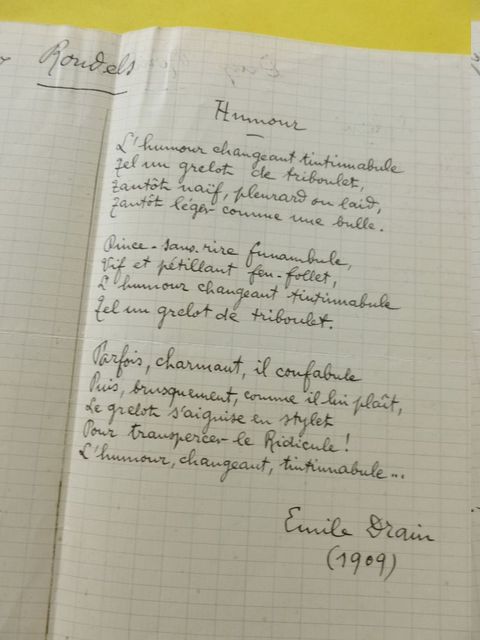 Rondels
Humour
L'humour changeant tintinnabule
Tel un grelot de triboulet,
Tantôt naïf, pleurard ou laid,
Tantôt léger comme une bulle.
Pince-sans-rire funambule,
Vif et pétillant feu-follet,
L'humour changeant tintinnabule
Tel un grelot de triboulet.
Parfois, charmant, il confabule
Puis, brusquement, comme il lui plaît,
Le grelot s'aiguise en stylet
Pour transpercer le Ridicule !
L'humour, changeant, tintinnabule...
Emile Drain
(1909)